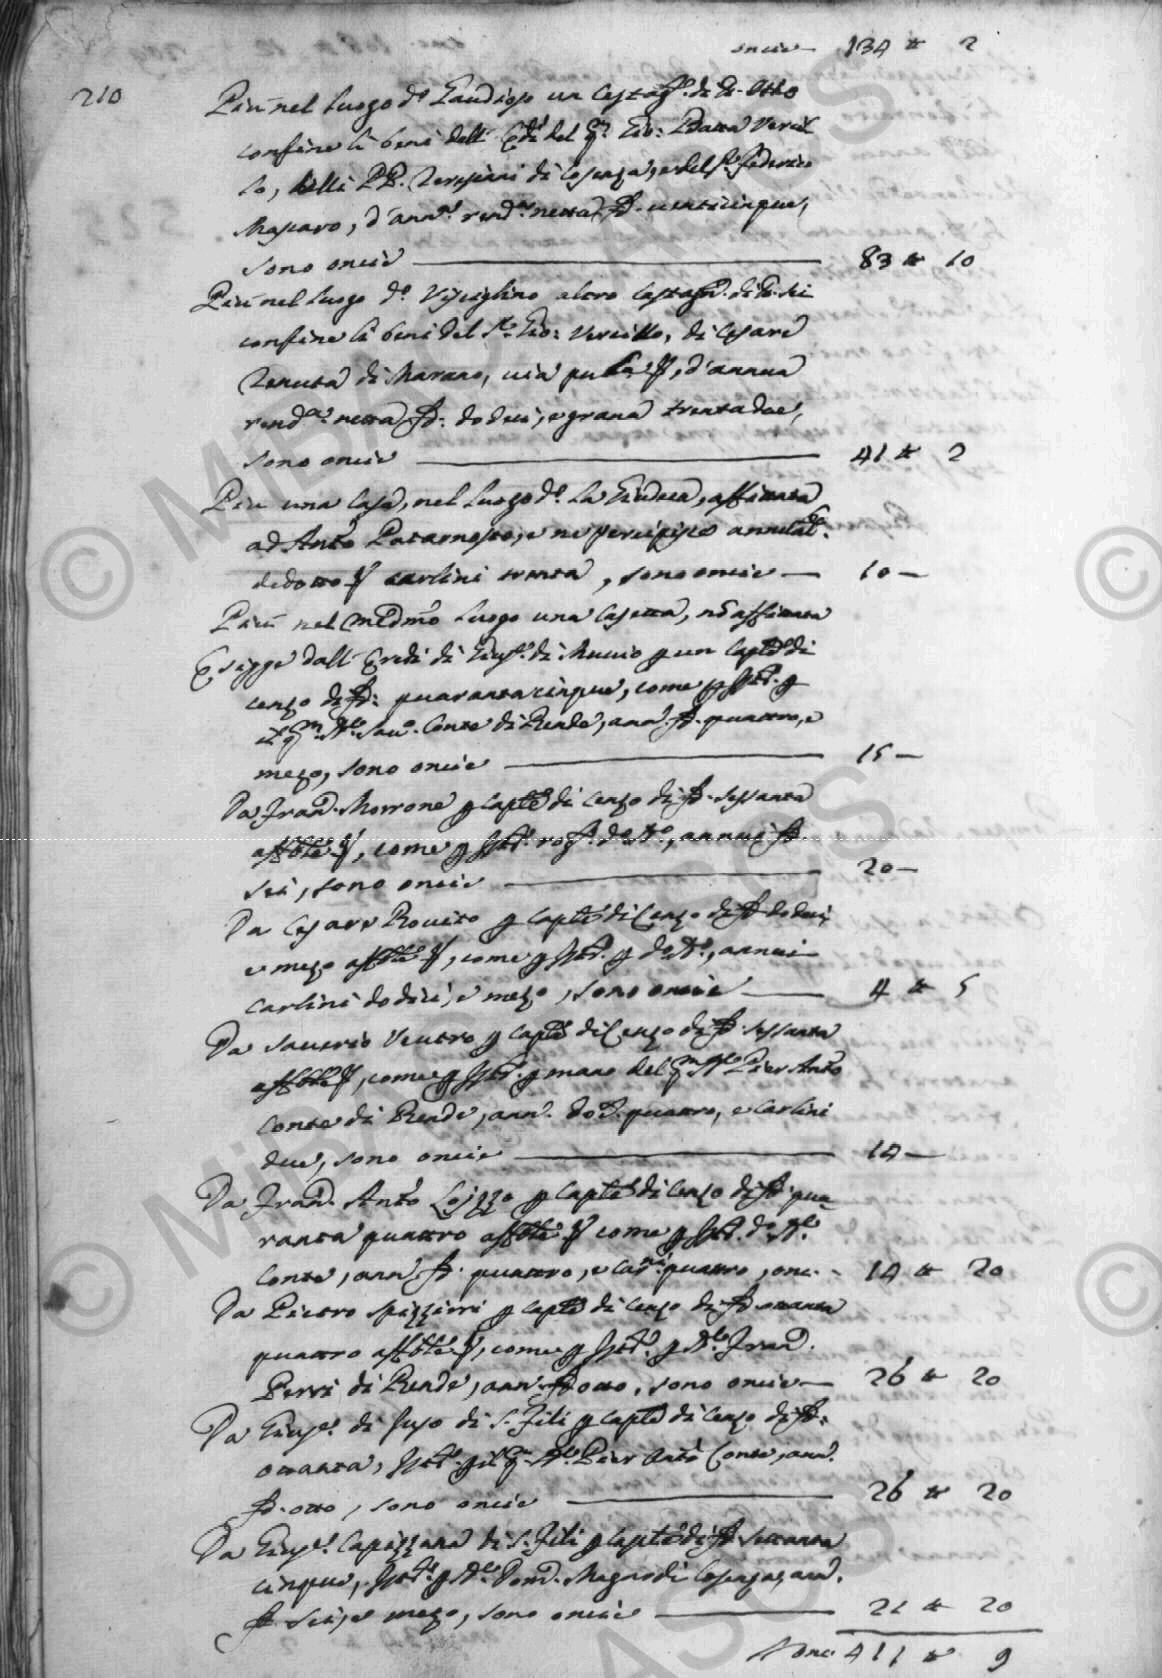 oncie 134 # 2
210
Più nel luogo d.º Gaudioso un Castag.º di t.e otto
confine li beni dell' Er.di del q.m Gio: Batta Vercil
lo, delli PP. Teresiani di Cosenza, e del S.r Federico
Mascaro, d'ann.l rend.a netta D. venticinque,
sono oncie 83 # 10
Più nel luogo d.º Visciglino altro Castagn.º di t.e sei
confine li beni del S.r Gio: Vercillo, di Cesare
Tenuta di Marano, via pub.ca, d'annua
rend.a netta D: dodeci, e grana trentadue,
sono oncie 41 # 2
Più una Casa, nel luogo d.º la Giudeca, affittata
ad Ant.o Paternostro, e ne percipisce annual.te
dedotto carlini trenta, sono oncie 10
Più nel med.mo luogo una Casetta, nō affittata
Esigge dall' Eredi di Gius.e di Muccio p un Capt.e di
cenzo di D: quarantacinque, come p Ist. p
il q.m N.r Sav. Conte di Rende, ann. D. quattro, e
mezo, sono oncie 15
Da Fran.co Morrone p Capt.e di cenzo di D. sessanta
aff.bile, come p Ist. rog. d.º N.r, annui D.
sei, sono oncie 20
Da Cesare Rovito p Capt.e di Cenzo di D. dodeci,
e mezo aff.bile, come p Ist. p d.º N.r, annui
carlini dodici, e mezo, sono oncie 4 # 5
Da Saverio Ventro p Capt.e di Cenzo di D. sessanta
aff.bile, come p Ist. p mano del q.m N.r Pier Ant.o
Conte di Rende, ann. doc. quattro, e Carlini
due, sono oncie 14
Da Fran.co Ant.o Loizzo p Capt.e di cenzo di D. qua
ranta quattro aff.bile come p Ist. d.º N.r
Conte, ann. D. quattro, e car.ni quattro, onc. 14 # 20
Da Pietro Spizzirri p Capt.e di cenzo di D. ottanta
quattro aff.bile, come p Ist. p N.r Fran.co
Perri di Rende, ann. D. otto, sono oncie 26 # 20
Da Gius.e di Fuso di S. Fili p Capt.e di cenzo di D.
ottanta, Ist. p il q.m N.r Pier Ant.o Conte, ann.
D. otto, sono oncie 26 # 20
Da Gius.e Capizzano di S. Fili p Capt.e di D. settanta
cinque, Ist. p N.r Dom.co Magno di Cosenza, ann.
D. sei, e mezo, sono oncie 21 # 20
Sono 411 # 9
© MiBAC ASCS